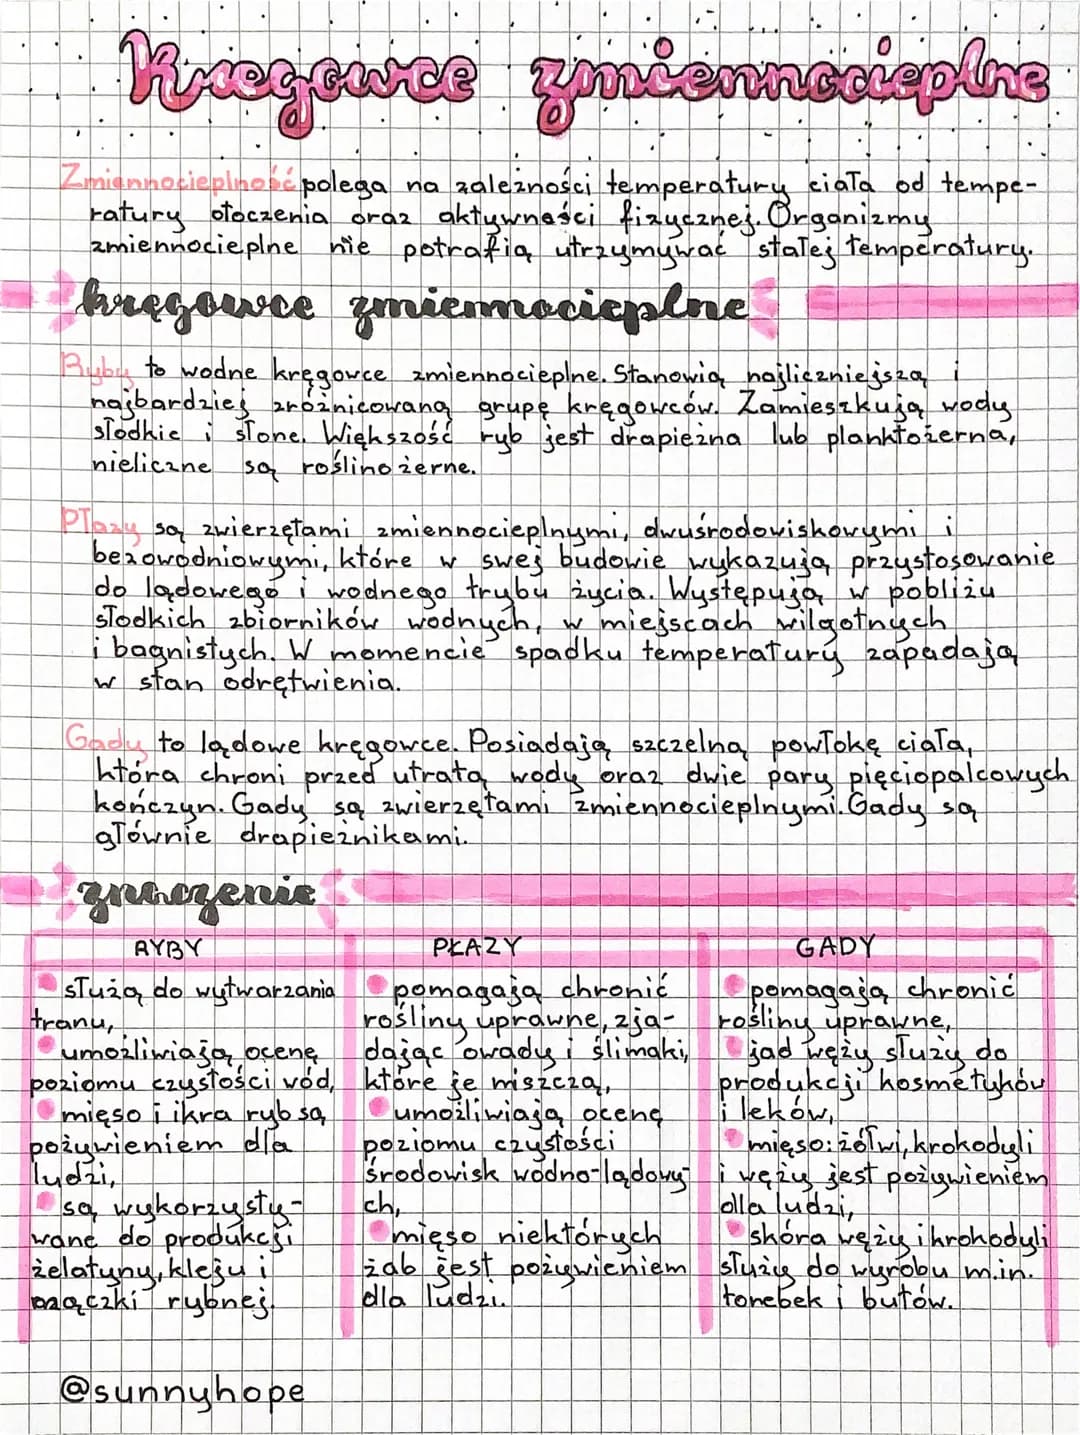 Kręgowce zmiennocieplne
Zmiennocieplność polega na zależności temperatury ciała od tempe-
ratury otoczenia oraz aktywności fizycznej. Organizmy
zmiennocieplne nie potrafią utrzymywać stałej temperatury.
kręgowce zmiennocieplne
Ryby to wodne kręgowce zmiennocieplne. Stanowią najliczniejszą i
najbardziej zróżnicowaną grupę kręgowców. Zamieszkują wody
słodkie i słone. Większość ryb jest drapieżna lub planktożerna,
nieliczne są roślinożerne.
Płazy są zwierzętami zmiennocieplnymi, dwuśrodowiskowymi i
bezowodniowymi, które w swej budowie wykazują przystosowanie
do lądowego i wodnego trybu życia. Występują w pobliżu
słodkich zbiorników wodnych, w miejscach wilgotnych
i bagnistych. W momencie spadku temperatury zapadają
w stan odrętwienia.
Gady to lądowe kręgowce. Posiadają szczelną powłokę ciała,
która chroni przed utratą wody oraz dwie pary pięciopalcowych
kończyn. Gady są zwierzętami zmiennocieplnymi. Gady są
głównie drapieżnikami.
znaczenie
RYBY PŁAZY GADY
służą do wytwarzania
tranu,
umożliwiają ocenę
poziomu czystości wód,
mięso i ikra ryb są
pożywieniem dla
ludzi,
są wykorzysty-
wane do produkcji
żelatyny, kleju i
mączki rybnej.
pomagają chronić
rośliny uprawne, zja-
dając owady i ślimaki,
które je miszczą,
umożliwiają ocenę
poziomu czystości
środowisk wodno-lądowy-
ch,
mięso niektórych
żab jest pożywieniem
dla ludzi.
pomagają chronić
rośliny uprawne,
jad węży służy do
produkcji kosmetyków
i leków,
mięso: żółwi, krokodyli
i węży jest pożywieniem
dla ludzi,
skóra węży i krokodyli
służy do wyrobu m.in.
torebek i butów.
@sunnyhope